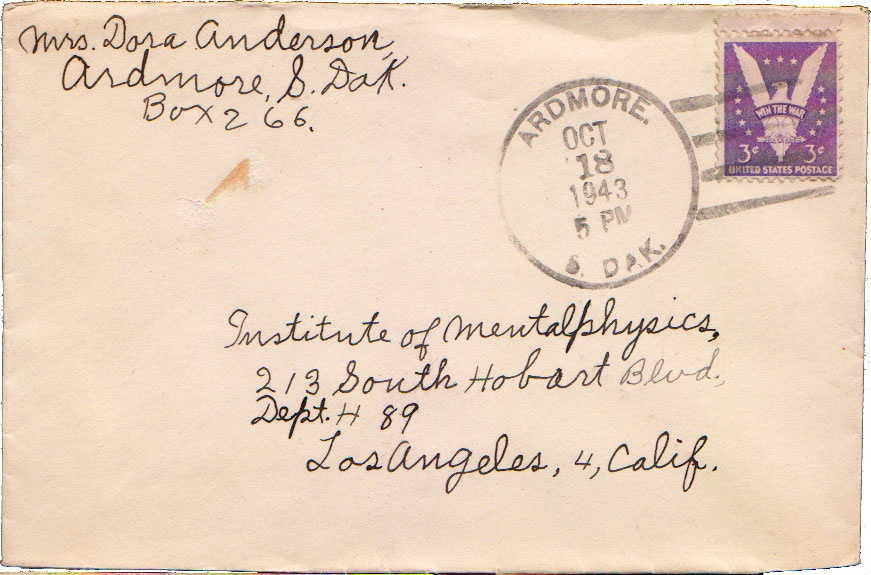 Mrs. Dora Anderson,
Ardmore, S. Dak.
Box 266.
ARDMORE.
OCT
18
1943
5 PM
S. DAK.
WIN THE WAR
3¢ 3¢
UNITED STATES POSTAGE
Institute of Mentalphysics,
213 South Hobart Blvd.,
Dept. H 89
Los Angeles, 4, Calif.